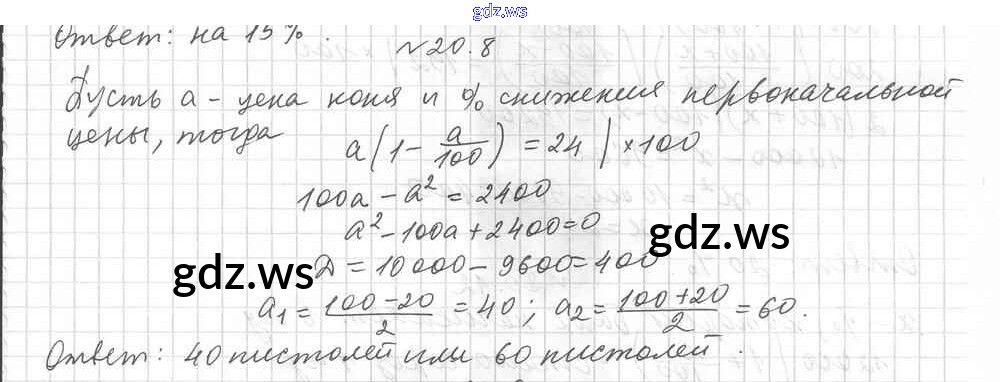 gdz.ws
Ответ: на 15%.
№20.8
Пусть a - цена коня и % снижения первоначальной
цены, тогда
a(1 - a/100) = 24 | ×100
100a - a² = 2400
a² - 100a + 2400 = 0
gdz.ws
gdz.ws
Д = 10000 - 9600 = 400
a₁ = (100-20)/2 = 40; a₂ = (100+20)/2 = 60.
Ответ: 40 пистолей или 60 пистолей.